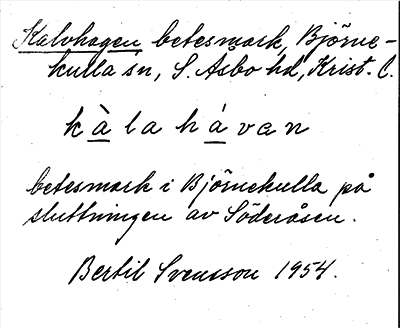 Kalvhagen, betesmark, Björne-
kulla sn, S. Åsbo hd, Krist. l.
kàlahávan
betesmark i Björnekulla på
sluttningen av Söderåsen.
Bertil Svensson 1954.